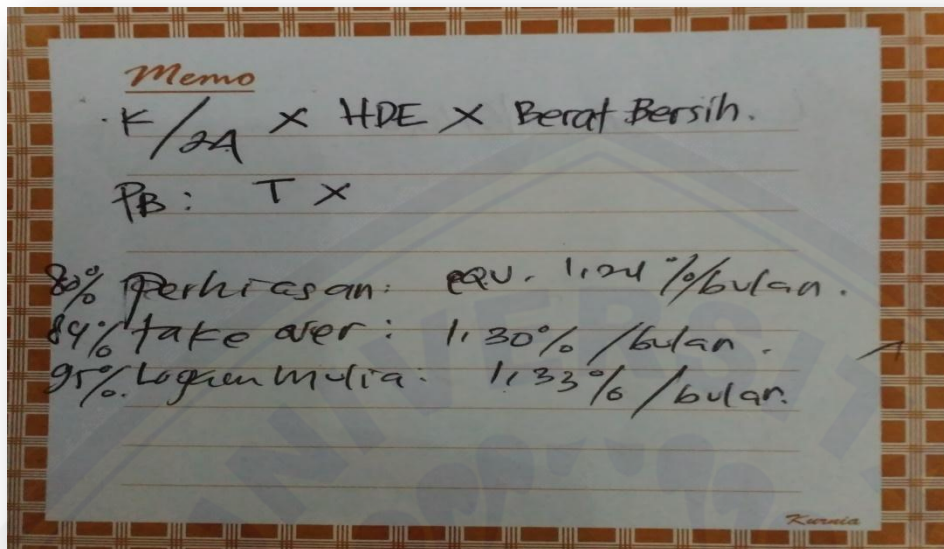 Memo
K/24 X HDE X Berat Bersih.
PB: T X
80% Perhiasan: equ. 1,24%/bulan.
84% take over: 1,30%/bulan.
95% Logam Mulia: 1,33%/bulan.
UNIVERSIT
Kurnia